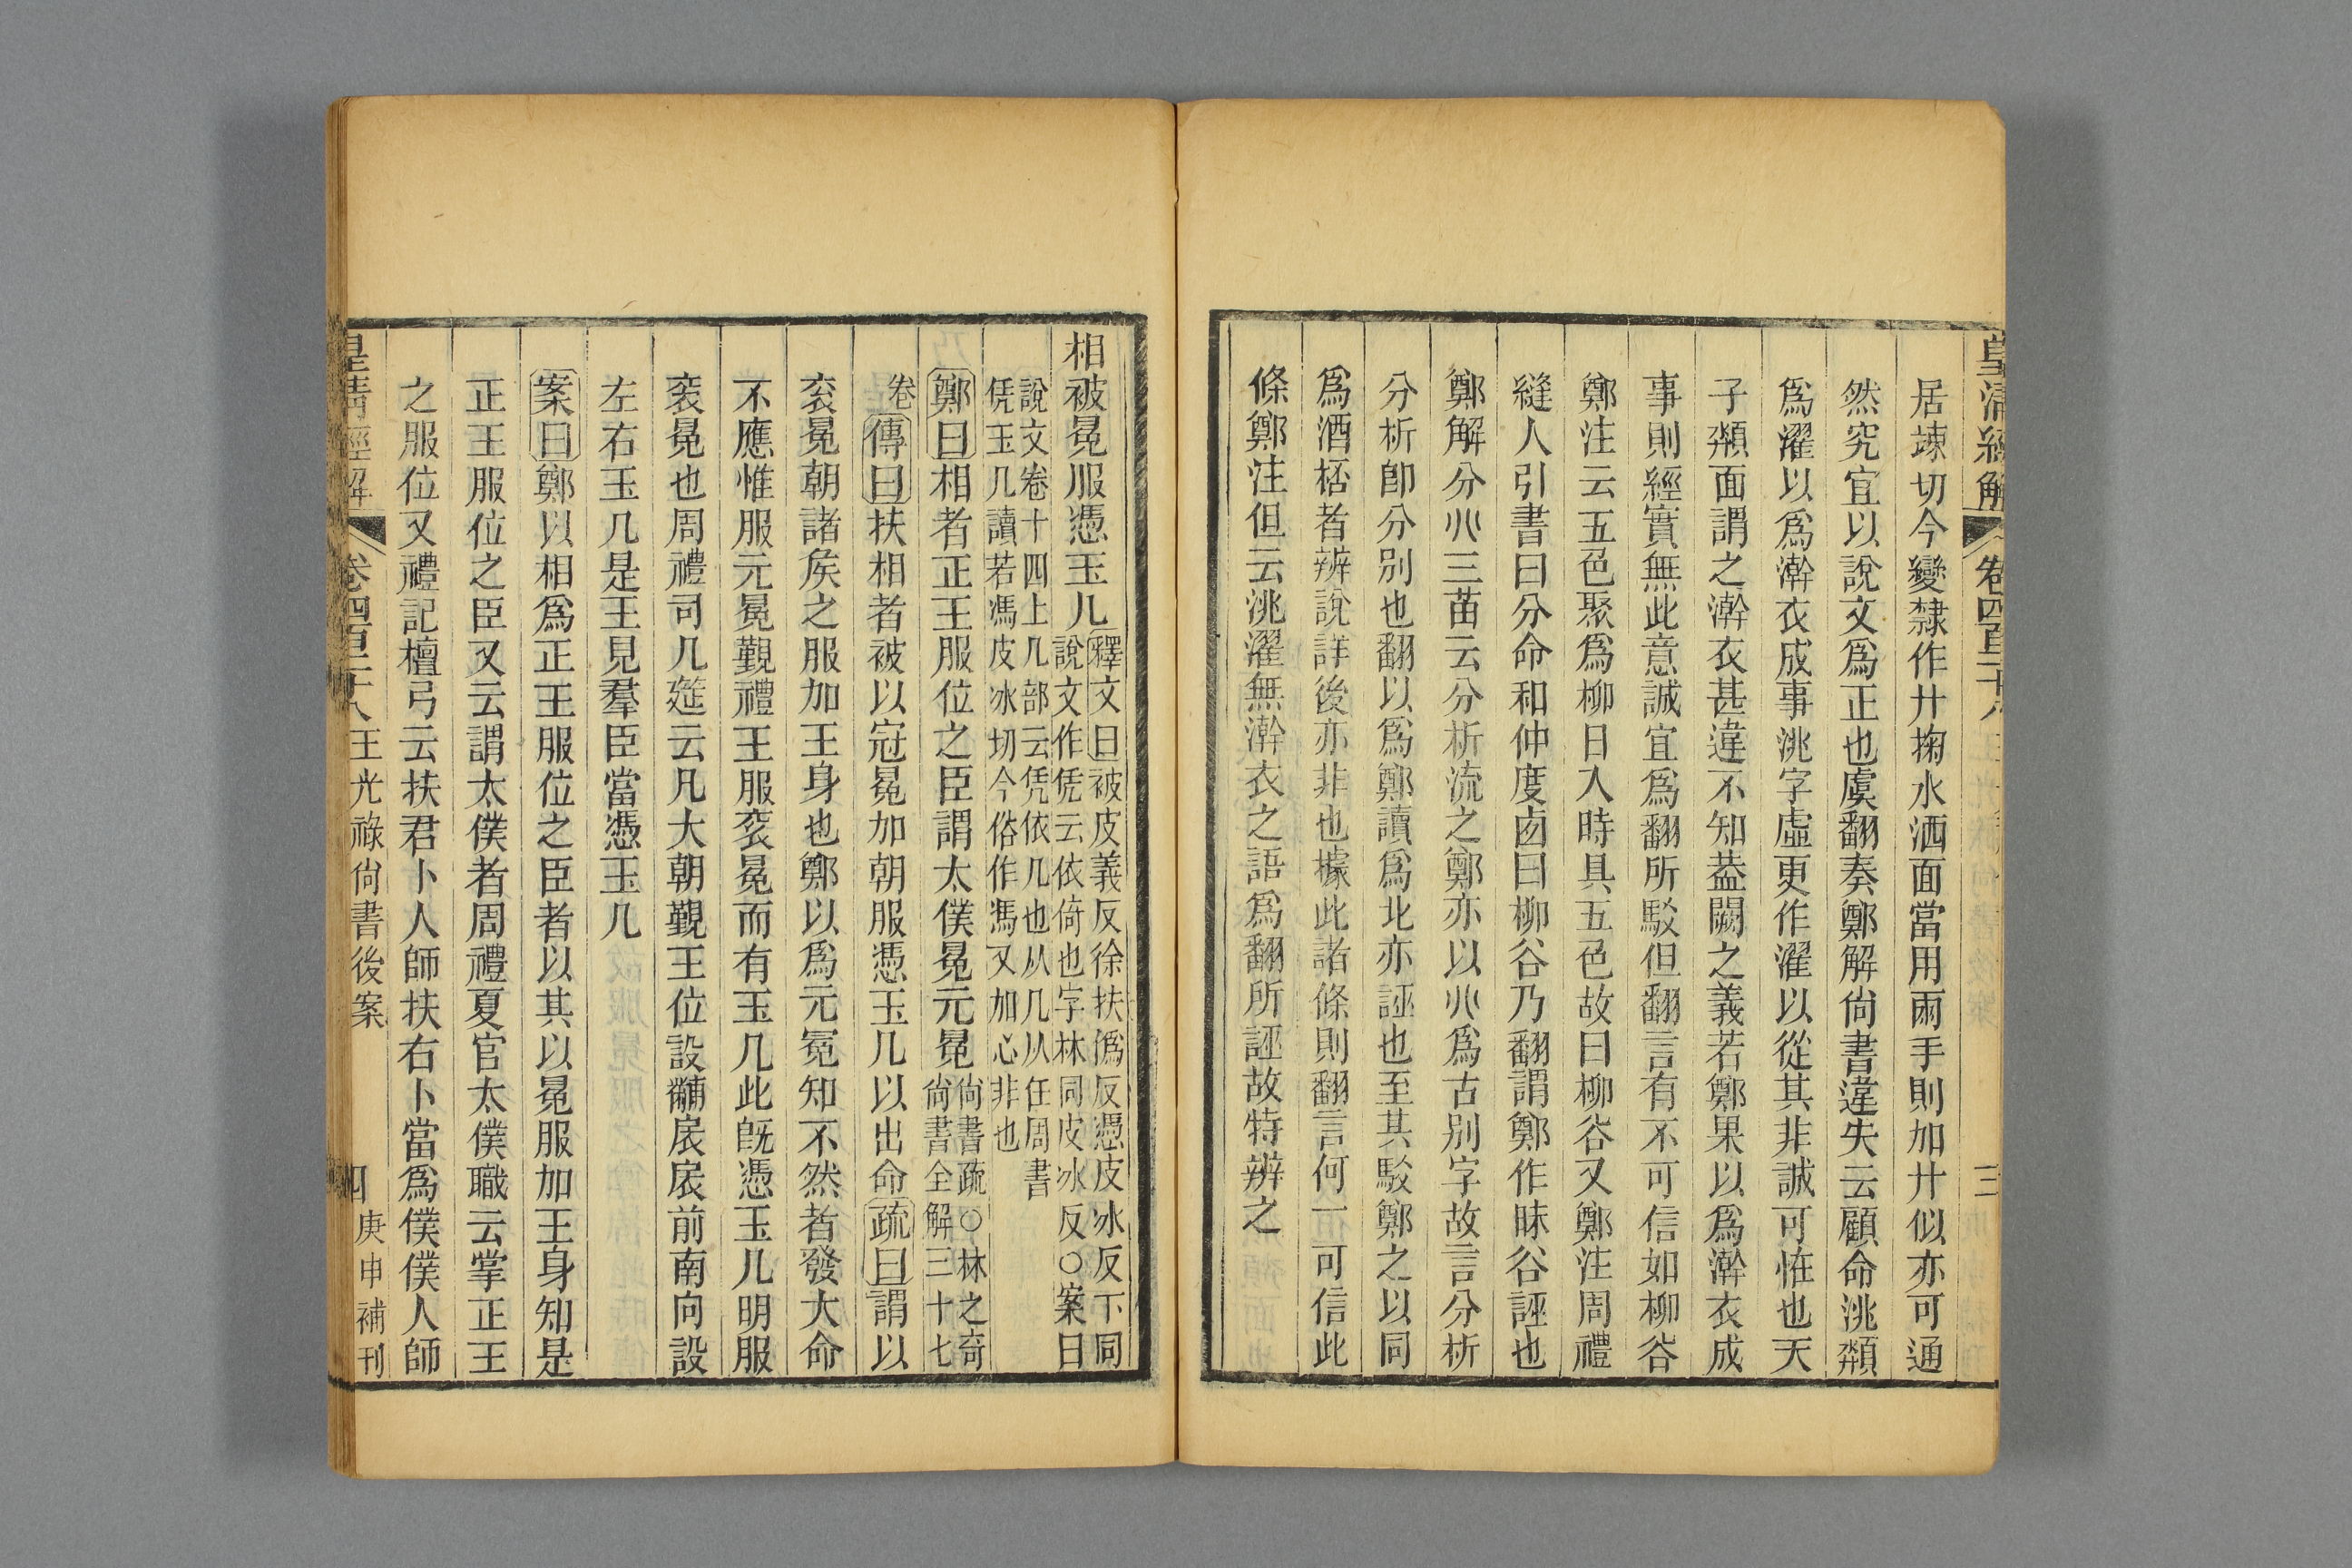 皇清經解 卷四百二十八 三
居竦切今變隸作廾掬水洒面當用兩手則加廾似亦可通
然究宜以說文爲正也虞翻奏鄭解尙書違失云顧命洮頮
爲濯以爲澣衣成事洮字虛更作濯以從其非誠可怪也天
子頮面謂之澣衣甚違不知葢闕之義若鄭果以爲澣衣成
事則經實無此意誠宜爲翻所駁但翻言有不可信如柳谷
鄭注云五色聚爲柳日入時具五色故曰柳谷又鄭注周禮
縫人引書曰分命和仲度卥曰柳谷乃翻謂鄭作昧谷誣也
鄭解分𠔁三苗云分析流之鄭亦以𠔁爲古別字故言分析
分析卽分別也翻以爲鄭讀爲北亦誣也至其駁鄭之以同
爲酒桮者辨說詳後亦非也據此諸條則翻言何一可信此
條鄭注但云洮濯無澣衣之語爲翻所誣故特辨之
相被冕服憑玉几釋文曰被皮義反徐扶僞反憑皮冰反下同
說文作凭云依倚也字林同皮冰反○案曰
說文卷十四上几部云凭依几也从几从任周書
凭玉几讀若馮皮冰切今俗作馮又加心非也
鄭曰相者正王服位之臣謂太僕冕元冕尙書疏○林之奇
尙書全解三十七
卷傳曰扶相者被以冠冕加朝服憑玉几以出命疏曰謂以
衮冕朝諸矦之服加王身也鄭以爲元冕知不然者發大命
不應惟服元冕覲禮王服衮冕而有玉几此旣憑玉几明服
衮冕也周禮司几筵云凡大朝覲王位設黼扆扆前南向設
左右玉几是王見羣臣當憑玉几
案曰鄭以相爲正王服位之臣者以其以冕服加王身知是
正王服位之臣又云謂太僕者周禮夏官太僕職云掌正王
之服位又禮記檀弓云扶君卜人師扶右卜當爲僕僕人師
皇清經解 卷四百二十八 王光祿尙書後案 四 庚申補刊